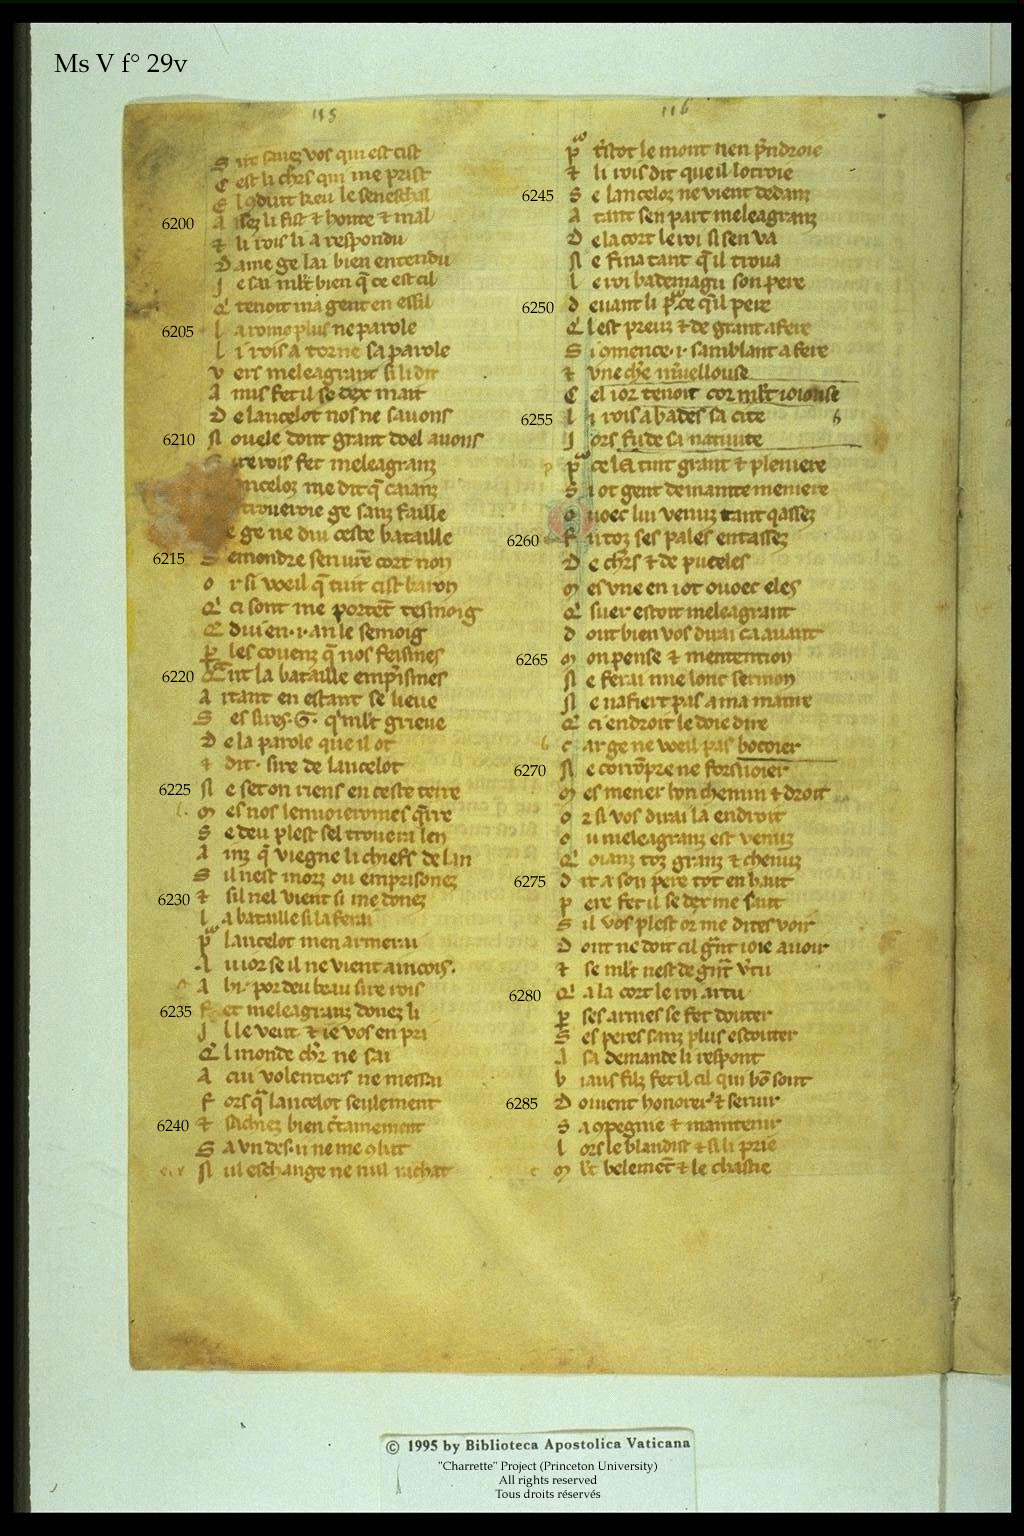 Ms V f° 29v
115
116
S ire sauez vos qui est cist
C est li chrs qui me prist
E l 9duit keu le seneschal
6200 A ssez li fist ⁊ honte ⁊ mal
⁊ li rois li a respondu
D ame ge lai bien entendu
J e sai mlt bien q̄ ce est cil
Q̍ tenoit ma gent en essil
6205 L a roine plus ne parole
L i rois a torne sa parole
v ers meleagrant si li dit
A mis fet il se dex mait
D e lancelot nos ne sauons
6210 N ouele dont grant doel auons
S ire rois fet meleaganz
anceloz me dit q̄ caianz
trouueroie ge sanz faille
e ge ne diu ceste bataille
6215 S emondre sen ur̄e cort non
o r si voeil q̄ tuit cist baron
Q̍ ci sont me portēt tesmoig
Q̍ dui en .i. an le semoig
ꝑ les couenz q̄ nos feismes
6220 Q̄nt la bataille emp̍ismes
A itant en estant se lieue
S es sires .G. q̍ mlt grieue
D e la parole que il ot
⁊ dit . sire de lancelot
6225 N e set on riens en ceste terre
m es nos lenuoieromes q̄rre
S e deu plest sel trouera len
A inz q̄ viegne li chiefs de lan
S il nest morz ou emprisonez
6230 ⁊ sil nel vient si me donez
l a bataille si la ferai
p lancelot men armerai
A iuior se il ne vient aincois .
A hi . por deu beau sire rois
6235 F et meleaganz donez li
J l le veut ⁊ ie vos en pri
Q̍ l monde chr̄ ne sai
A cui volentiers ne messai
F ors q̄ lancelot seulement
6240 ⁊ sachiez bien c̄tainement
S a vn des .ii ne me 9bat
N ul eschange ne nul rachat
p tstot le mont nen p̄ndroie
⁊ li rois dit que il lotroie
6245 S e lanceloz ne vient dedanz
A tant sen part meleaganz
D e la cort le roi si sen va
N e fina tant q̄ il troua
L e roi bademagu son pere
6250 d euant li p̄ ce q̍l pere
Q̍ l est preuz ⁊ de grant afere
S i omence .i. samblant a fere
⁊ vne chr̄e m̄uellouse
C el ior tenoit cor mlt ioiouse
6255 l i rois a bades sa cite
J ors fu de sa natiuite
p ce la tint grant ⁊ pleniere
S i ot gent de mainte meniere
O uoec lui venuz tant q assez
6260 F u toz ses pales entassez
D e chrs ⁊ de puceles
m es vne en i ot ouoec eles
Q̍ suer estoit meleagrant
d ont bien vos dirai ca auant
6265 m on pense ⁊ mentention
N e ferai mie lonc sermon
N e nafiert pas a ma matire
Q̍ ci endroit le doie dire
c ar ge ne voeil pas bocoier
6270 N e corrōpre ne forsuoier
m es mener bon chemin ⁊ droit
o r si vos dirai la endroit
o u meleaganz est venuz
Q̍ oianz toz granz ⁊ chenuz
6275 d it a son pere tot en haut
p ere fet il se dex me saut
S il vos plest or me dites voir
D ont ne doit cil gr̄nt ioie auoir
⁊ se mlt nest de gr̄nt v̄tu
6280 Q̍ a la cort le roi artu
ꝑ ses armes se fet douter
S es peres sanz plus escouter
A sa demande li respont
b iaus filz fet il cil qui bō sont
6285 D oiuent honorer ⁊ seruir
S a 9pegnie ⁊ maintenir
l ors le blandist ⁊ si li prie
m lt belemēt ⁊ le chastie
© 1995 by Biblioteca Apostolica Vaticana
"Charrette" Project (Princeton University)
All rights reserved
Tous droits réservés